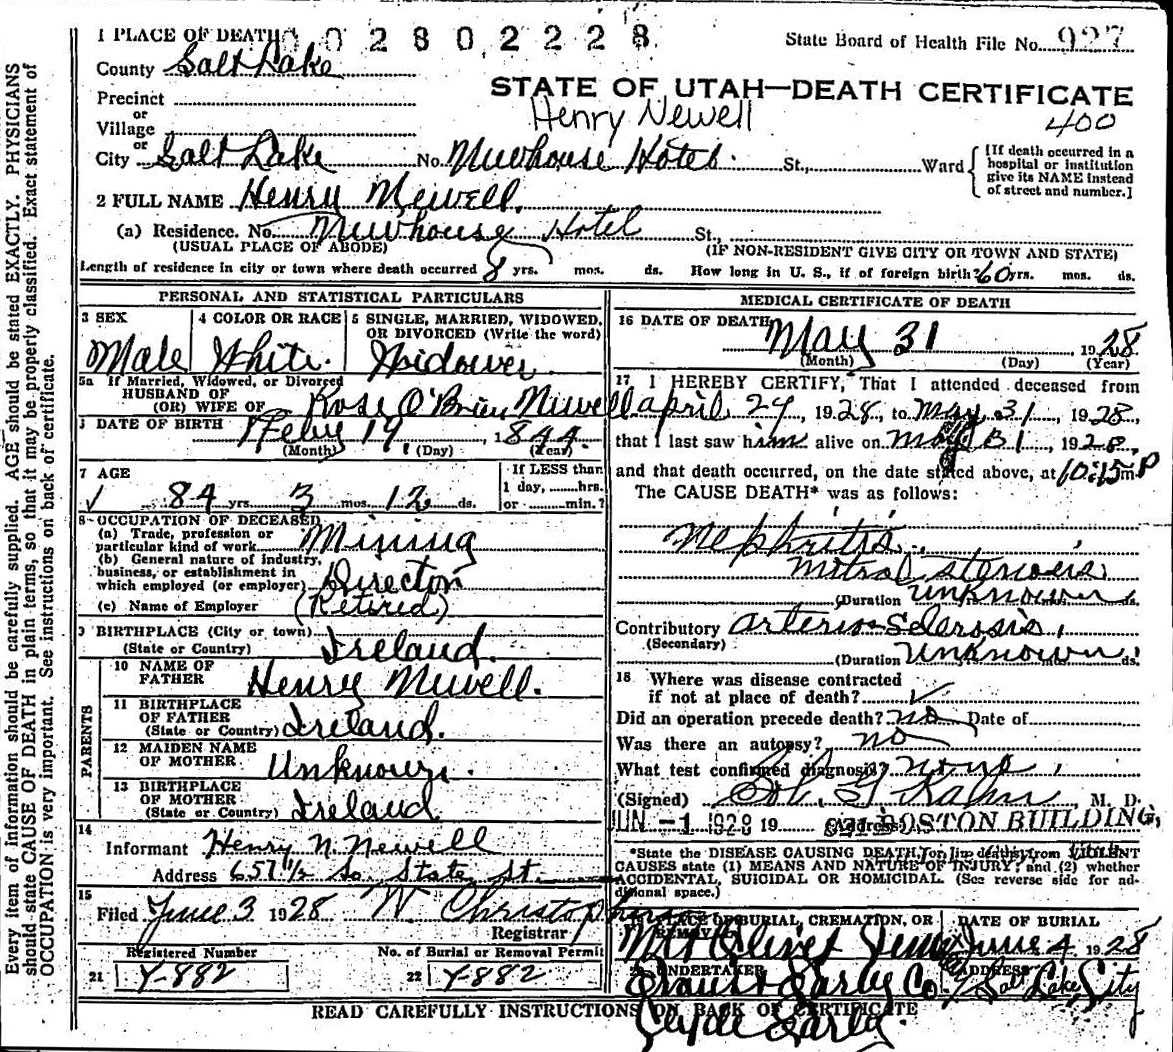 1 PLACE OF DEATH 0028 02228
State Board of Health File No. 927
County Salt Lake
STATE OF UTAH—DEATH CERTIFICATE
Precinct
Henry Newell
400
or
Village
or
City Salt Lake No. Newhouse Hotel. St., Ward
[If death occurred in a
hospital or institution
give its NAME instead
of street and number.]
2 FULL NAME Henry Newell.
(a) Residence. No. Newhouse Hotel St.,
(USUAL PLACE OF ABODE) (IF NON-RESIDENT GIVE CITY OR TOWN AND STATE)
Length of residence in city or town where death occurred 8 yrs. mos. ds. How long in U. S., if of foreign birth? 60 yrs. mos. ds.
PERSONAL AND STATISTICAL PARTICULARS
3 SEX
Male
4 COLOR OR RACE
White.
5 SINGLE, MARRIED, WIDOWED,
OR DIVORCED (Write the word)
Widower.
5a If Married, Widowed, or Divorced
HUSBAND OF
(OR) WIFE OF Rose O'Brien Newell
DATE OF BIRTH Feby 19, 1844.
(Month) (Day) (Year)
7 AGE
84 yrs. 3 mos. 12 ds.
If LESS than
1 day, hrs.
or min.?
8 OCCUPATION OF DECEASED
(a) Trade, profession or
particular kind of work Mining
(b) General nature of industry,
business, or establishment in
which employed (or employer) Director
(c) Name of Employer (Retired)
9 BIRTHPLACE (City or town)
(State or Country) Ireland.
PARENTS
10 NAME OF
FATHER Henry Newell.
11 BIRTHPLACE
OF FATHER
(State or Country) Ireland.
12 MAIDEN NAME
OF MOTHER Unknown.
13 BIRTHPLACE
OF MOTHER
(State or Country) Ireland
14
Informant Henry N. Newell
Address 657 1/2 So. State St.
15
Filed June 3 1928 W. Christopherson
Registrar
Registered Number
21 Y-882
No. of Burial or Removal Permit
22 Y-882
MEDICAL CERTIFICATE OF DEATH
16 DATE OF DEATH
May 31 1928
(Month) (Day) (Year)
17 I HEREBY CERTIFY, That I attended deceased from
april 24, 1928, to May 31, 1928,
that I last saw him alive on May 31, 1928,
and that death occurred, on the date stated above, at 10:15 P m
The CAUSE DEATH* was as follows:
Nephritis.
Mitral Stenosis
(Duration Unknown ds.
Contributory Arterio-Sclerosis,
(Secondary)
(Duration Unknown. ds.
18 Where was disease contracted
if not at place of death?
Did an operation precede death? no Date of
Was there an autopsy? no
What test confirmed diagnosis? none
(Signed) G Kahn, M. D.
JUN -1 1928 19 (Address) BOSTON BUILDING,
*State the DISEASE CAUSING DEATH, or in deaths from VIOLENT
CAUSES state (1) MEANS AND NATURE OF INJURY; and (2) whether
ACCIDENTAL, SUICIDAL OR HOMICIDAL. (See reverse side for ad-
ditional space.)
19 PLACE OF BURIAL, CREMATION, OR
REMOVAL
Mt Olivet
DATE OF BURIAL
June 4 1928
20 UNDERTAKER
Evans & Early Co.
ADDRESS
Salt Lake City
Clyde Early.
READ CAREFULLY INSTRUCTIONS ON BACK OF CERTIFICATE
Every item of information should be carefully supplied. AGE should be stated EXACTLY. PHYSICIANS
should state CAUSE OF DEATH in plain terms, so that it may be properly classified. Exact statement of
OCCUPATION is very important. See instructions on back of certificate.